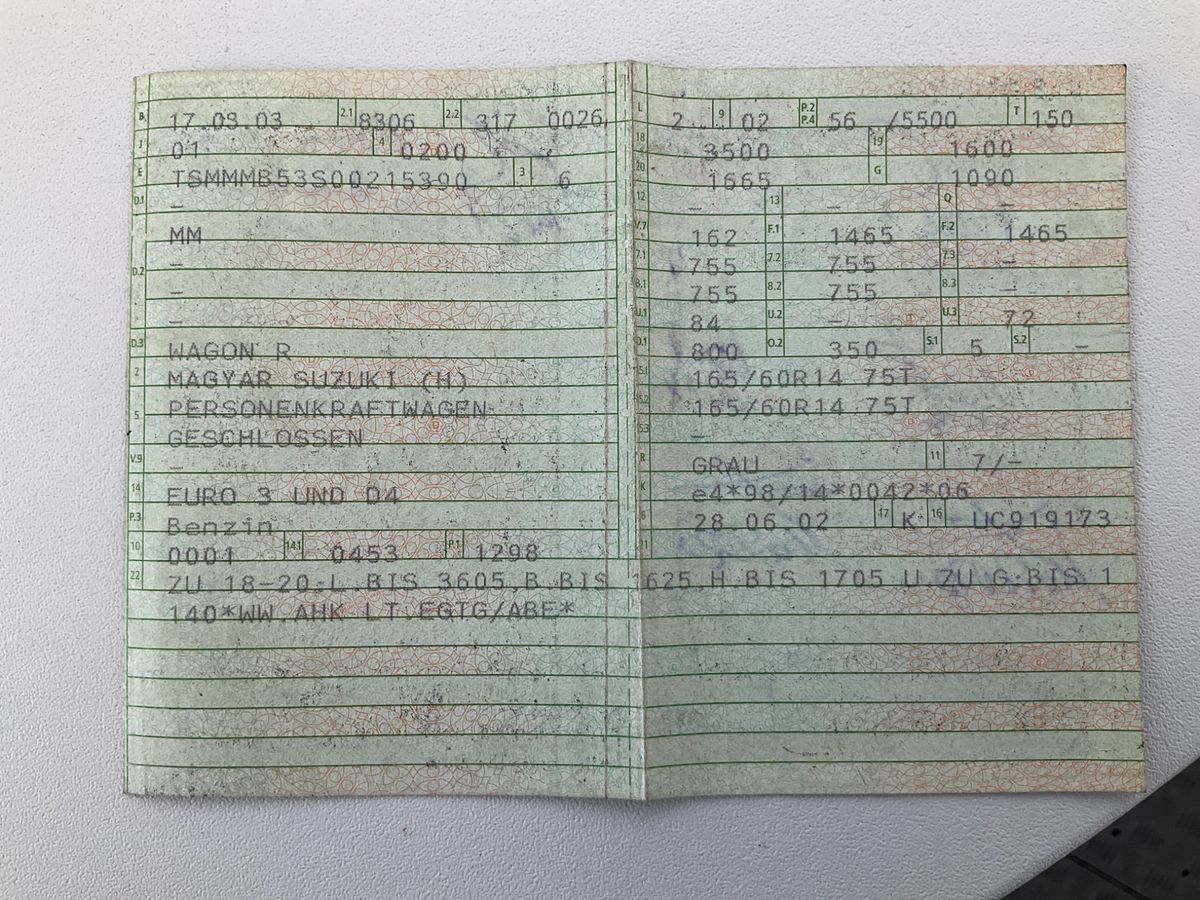 B 17.03.03 2.1 8306 2.2 317 0026
J 01 4 0200 7
E TSMMMB53S00215390 3 6
D.1 –
MM
D.2 –
–
–
D.3 WAGON R
2 MAGYAR SUZUKI (H)
5 PERSONENKRAFTWAGEN
GESCHLOSSEN
V.9 –
14 EURO 3 UND D4
P.3 Benzin
10 0001 14.1 0453 P.1 1298
L 2 9 02 P.2 P.4 56 /5500 T 150
18 3500 19 1600
20 1665 G 1090
12 – 13 – Q –
V.7 162 F.1 1465 F.2 1465
7.1 755 7.2 755 7.3 –
8.1 755 8.2 755 8.3 –
U.1 84 U.2 – U.3 72
O.1 800 O.2 350 S.1 5 S.2 –
15.1 165/60R14 75T
15.2 165/60R14 75T
15.3 –
R GRAU 11 7/–
K e4*98/14*0042*06
6 28.06.02 17 K 16 UC919173
22 ZU 18-20:L.BIS 3605,B.BIS 1625,H.BIS 1705 U.ZU G:BIS 1
140*WW.AHK LT.EGTG/ABE*